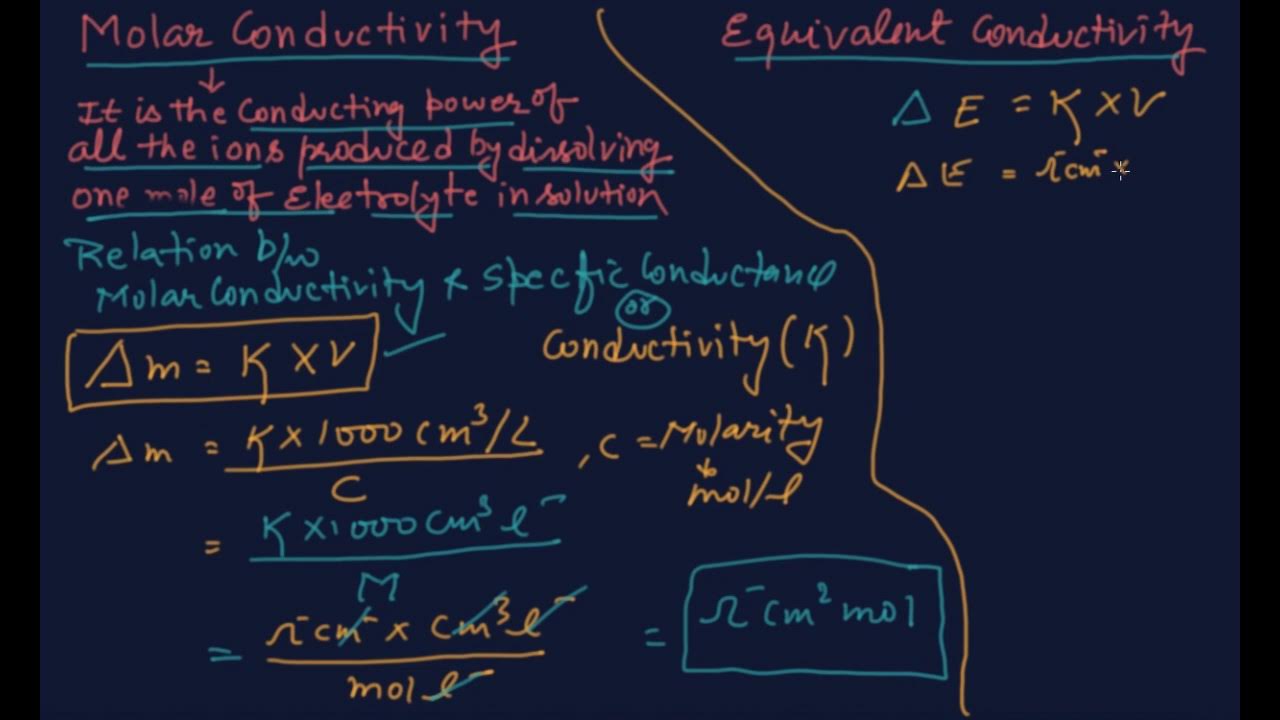 Molar Conductivity
↓
It is the Conducting power of
all the ions produced by dissolving
one mole of Electrolyte in solution
Relation b/w
Molar Conductivity & Specfic Conductance
or
Conductivity (K)
Δm = K X V
Δm = K X 1000 cm³/L , C = Molarity
C
mol/l
= K X 1000 cm³ l⁻
M
= Ω⁻ cm⁻ x cm³ l⁻
mol l⁻
= Ω⁻ cm² mol
Equivalent Conductivity
Δ E = K X V
Δ E = Ω⁻ cm⁻ x